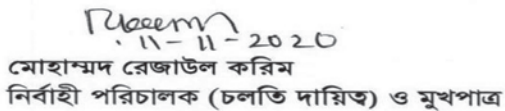 11-11-2020
মোহাম্মদ রেজাউল করিম
নির্বাহী পরিচালক (চলতি দায়িত্ব) ও মুখপাত্র